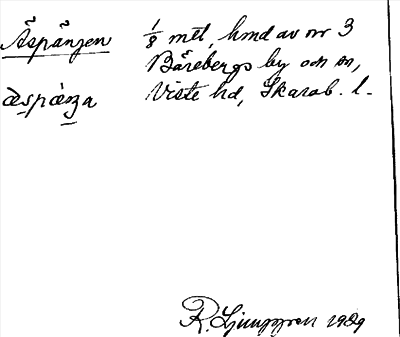 Äspången 1/8 mtl, hmd av nr 3
Bårebergs by och sn,
æspåŋa Viste hd, Skarab. l.
R. Ljunggren 1929